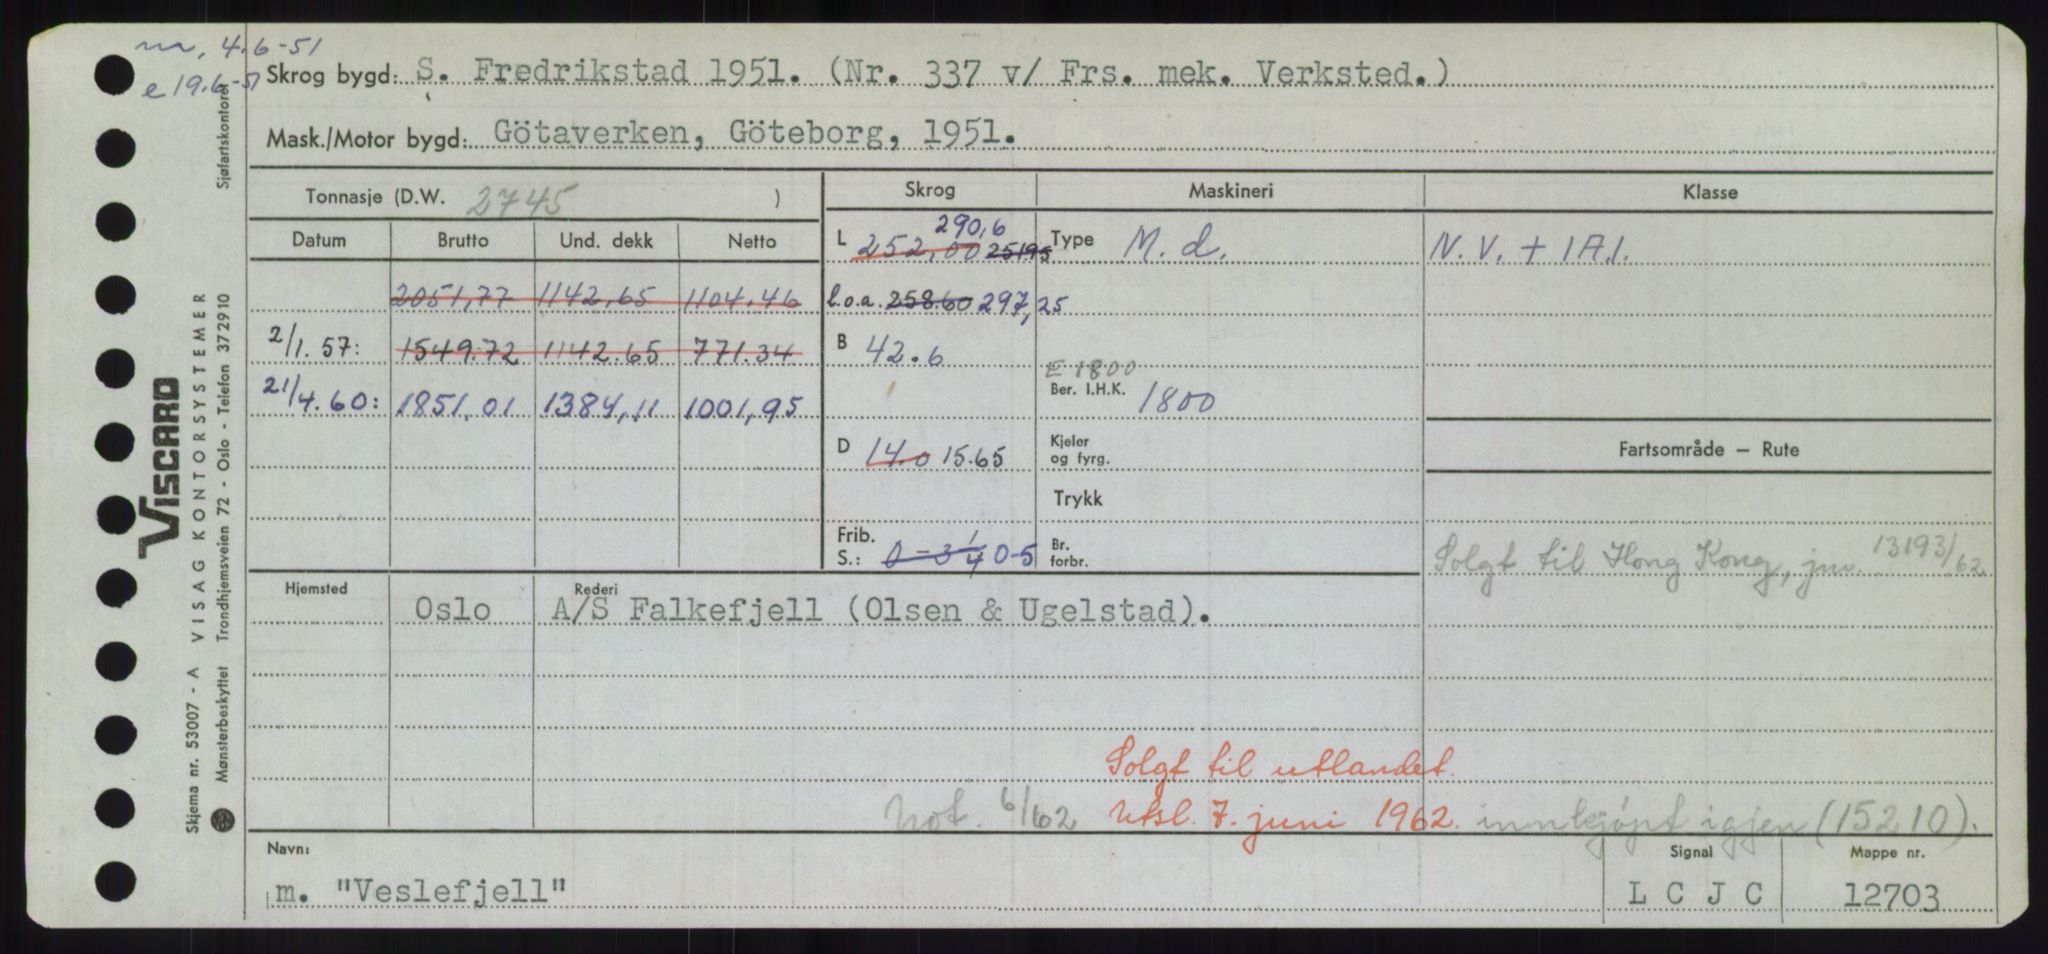 m, 4.6-51
e 19.6-51
Skrog bygd: S. Fredrikstad 1951. (Nr. 337 v/ Frs. mek. Verksted.)
Mask./Motor bygd: Götaverken, Göteborg, 1951.
Tonnasje (D.W. 2745 )
Skrog
Maskineri
Klasse
Datum Brutto Und. dekk Netto
2051,77 1142,65 1104.46
2/1.57: 1549.72 1142.65 771.34
21/4.60: 1851,01 1384,11 1001,95
290,6
L 252,00 251.95
l.o.a. 258.60 297,25
B 42.6
D 14.0 15.65
Frib.
S.: 0-3 1/4 0-5
Type M.d.
E 1800
Ber. I.H.K. 1800
Kjeler
og fyrg.
Trykk
Br.
forbr.
N.V. + 1A.1.
Fartsområde — Rute
Solgt til Hong Kong, jnr. 13193/62
Hjemsted Rederi
Oslo A/S Falkefjell (Olsen & Ugelstad).
Solgt til utlandet.
Not. 6/62 Utsl. 7. juni 1962. innkjøpt igjen (15210).
Navn: Signal Mappe nr.
m. "Veslefjell" L C J C 12703
Skjema nr. 53007 - A VISAG KONTORSYSTEMER Sjøfartskontoret
Mønsterbeskyttet Trondhjemsveien 72 - Oslo - Telefon 372910
VISCARD